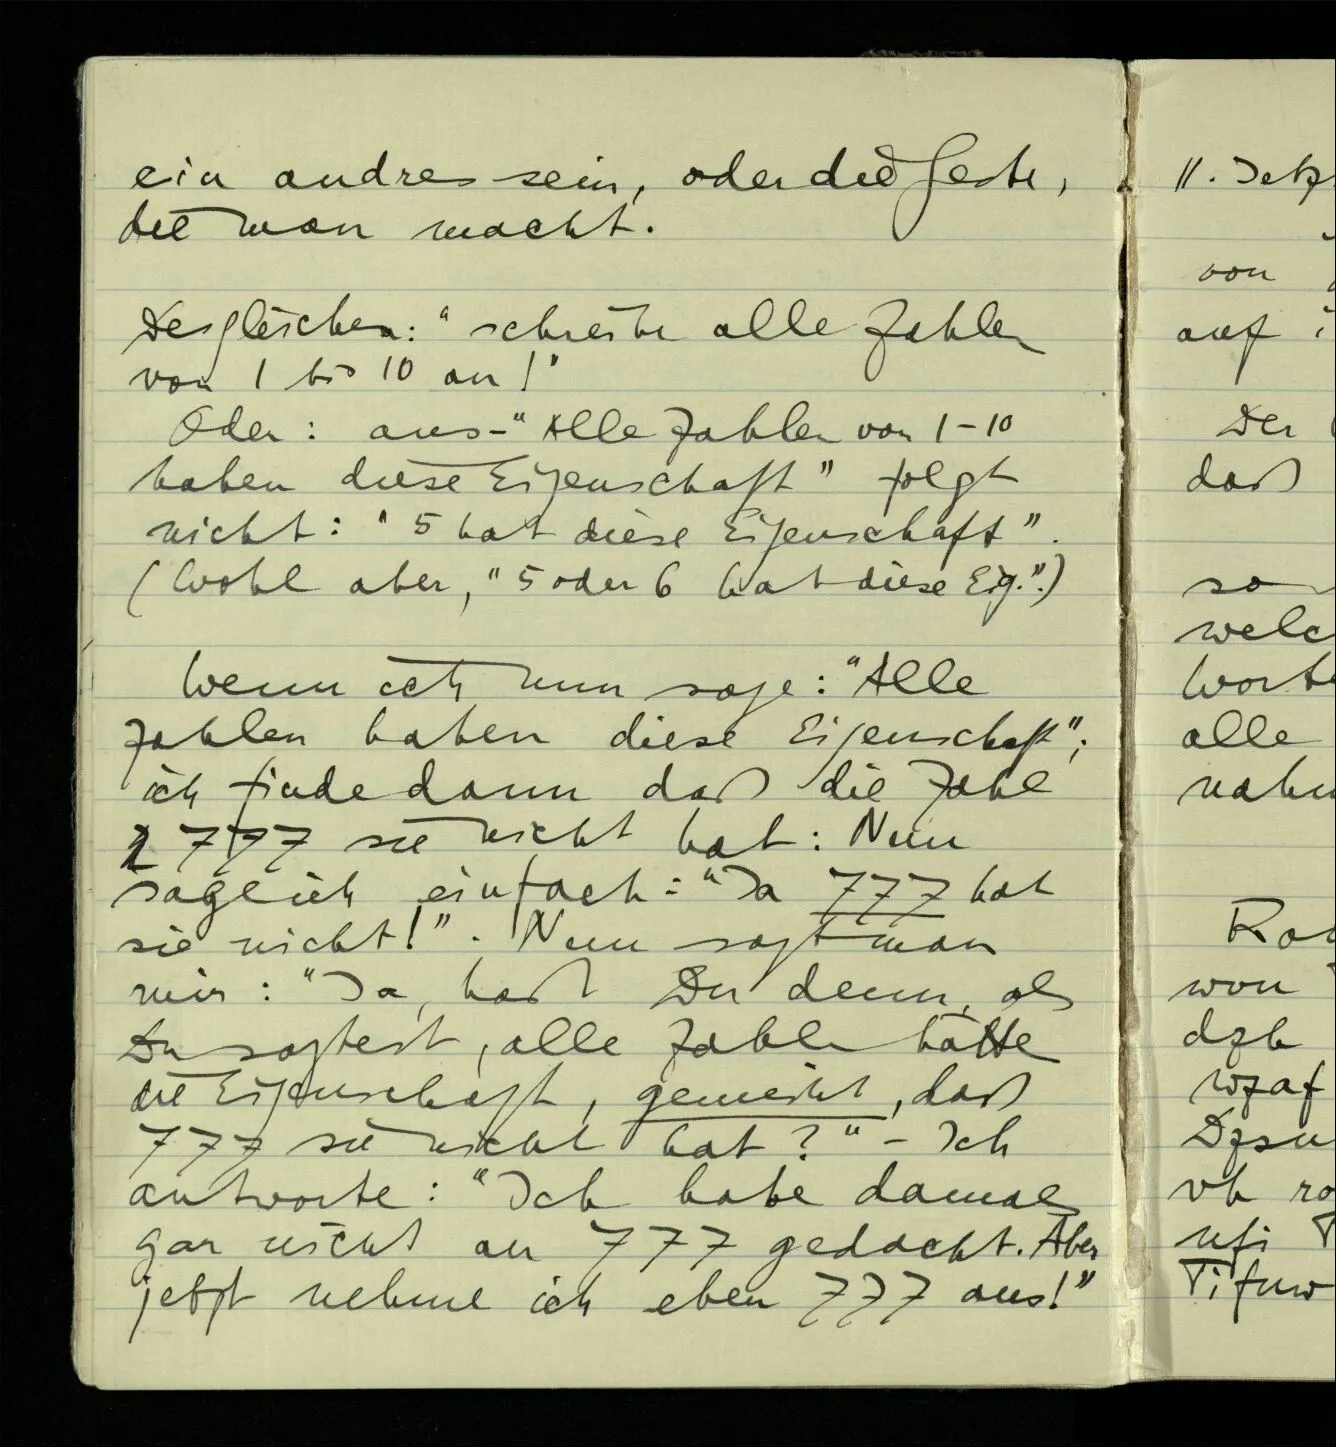 ein andres sein, oder die Geste,
die man macht.
Desgleichen: "schreibe alle Zahlen
von 1 bis 10 an!"
Oder: aus "Alle Zahlen von 1-10
haben diese Eigenschaft" folgt
nicht: "5 hat diese Eigenschaft".
(Wohl aber, "5 oder 6 hat diese Eig.".)
Wenn ich nun sage: "Alle
Zahlen haben diese Eigenschaft";
ich finde dann daß die Zahl
777 sie nicht hat: Nun
sage ich einfach: "Ja 777 hat
sie nicht!". Nun sagt man
mir: "Ja, hast Du denn, als
Du sagtest, alle Zahlen hätten
die Eigenschaft, gemeint, daß
777 sie nicht hat?" – Ich
antworte: "Ich habe damals
gar nicht an 777 gedacht. Aber
jetzt nehme ich eben 777 aus!"
11. Jetz
von
auf
Der
daß
so
welc
Worte
alle
nahm
won
dzh
wzaf
Dzsu
vh ro
ufi